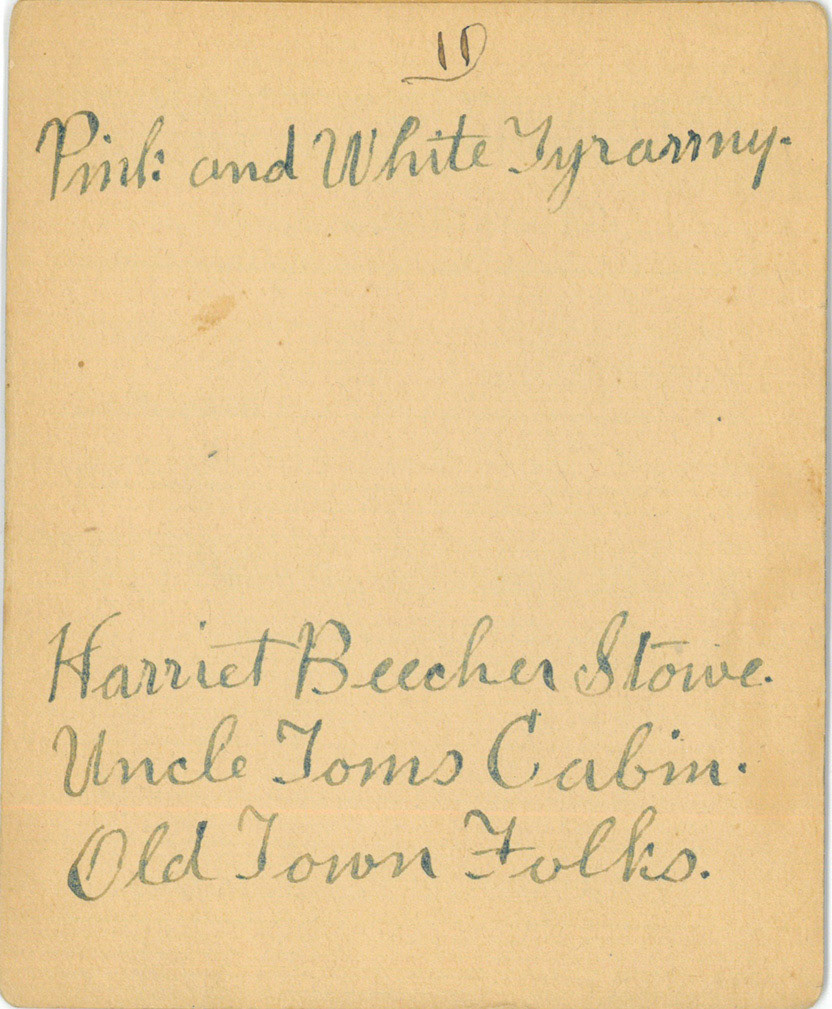 11
Pink and White Tyranny.
Harriet Beecher Stowe.
Uncle Toms Cabin.
Old Town Folks.